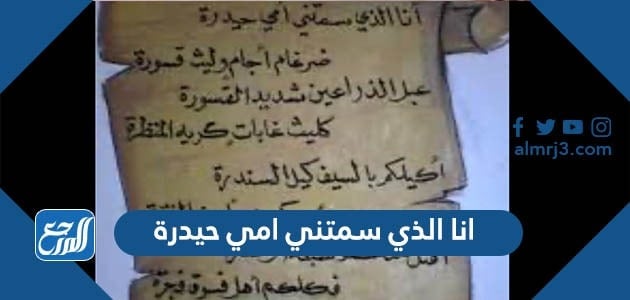 أنا الذي سمتني أمي حيدرة
ضرغام أجام وليث قسورة
عبل الذراعين شديد القسورة
كليث غابات كريه المنظرة
أكيلكم بالسيف كيل السندرة
almrj3.com
انا الذي سمتني امي حيدرة
المرجع
فكلكم أهل فسوق فجرة